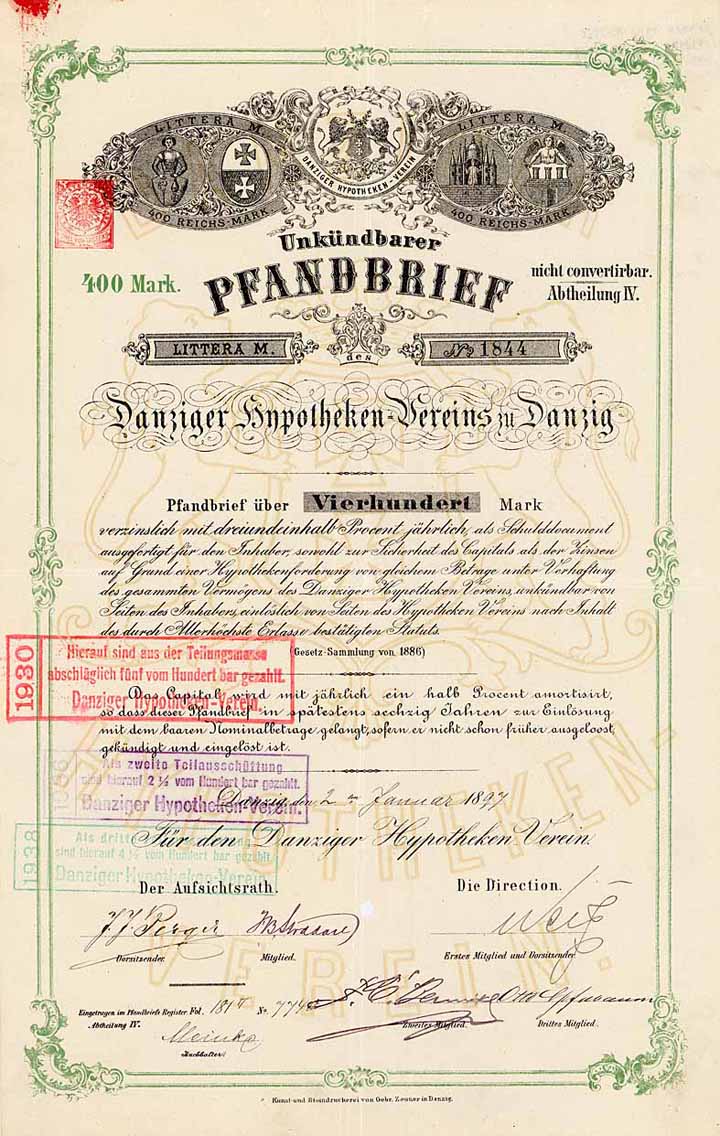 LITTERA M.
400 REICHS-MARK
DANZIGER HYPOTHEKEN-VEREIN
LITTERA M.
400 REICHS-MARK
Unkündbarer
400 Mark.
PFANDBRIEF
nicht convertirbar.
Abtheilung IV.
LITTERA M.
des
No 1844
Danziger Hypotheken-Vereins zu Danzig
Pfandbrief über Vierhundert Mark
verzinslich mit dreiundeinhalb Procent jährlich, als Schulddocument
ausgefertigt für den Inhaber, sowohl zur Sicherheit des Capitals als der Zinsen
auf Grund einer Hypothekenforderung von gleichem Betrage unter Verhaftung
des gesammten Vermögens des Danziger Hypotheken Vereins, unkündbar von
Seiten des Inhabers, einlöslich von Seiten des Hypotheken Vereins nach Inhalt
des durch Allerhöchste Erlasse bestätigten Statuts.
(Gesetz-Sammlung von 1886)
1930
Hierauf sind aus der Teilungsmasse
abschläglich fünf vom Hundert bar gezahlt.
Danziger Hypotheken-Verein.
Das Capital wird mit jährlich ein halb Procent amortisirt,
so dass dieser Pfandbrief in spätestens sechzig Jahren zur Einlösung
mit dem baaren Nominalbetrage gelangt, sofern er nicht schon früher ausgeloost,
gekündigt und eingelöst ist.
Als zweite Teilausschüttung
sind hierauf 2 ½ vom Hundert bar gezahlt.
Danziger Hypotheken-Verein.
Danzig, den 2 Januar 1897
1938
Als dritte
sind hierauf 4 ½ vom Hundert bar gezahlt.
Danziger Hypotheken-Verein.
Für den Danziger Hypotheken Verein.
Der Aufsichtsrath.
Die Direction.
J. J. Berger
Vorsitzender.
Mitglied.
Erstes Mitglied und Vorsitzender.
Eingetragen im Pfandbriefs Register Fol. 181
No. 774
Abtheilung IV.
Meinke
Buchhalter.
Zweites Mitglied.
Drittes Mitglied.
Kunst- und Steindruckerei von Gebr. Zeuner in Danzig.
HYPOTHEKEN-
VEREIN.